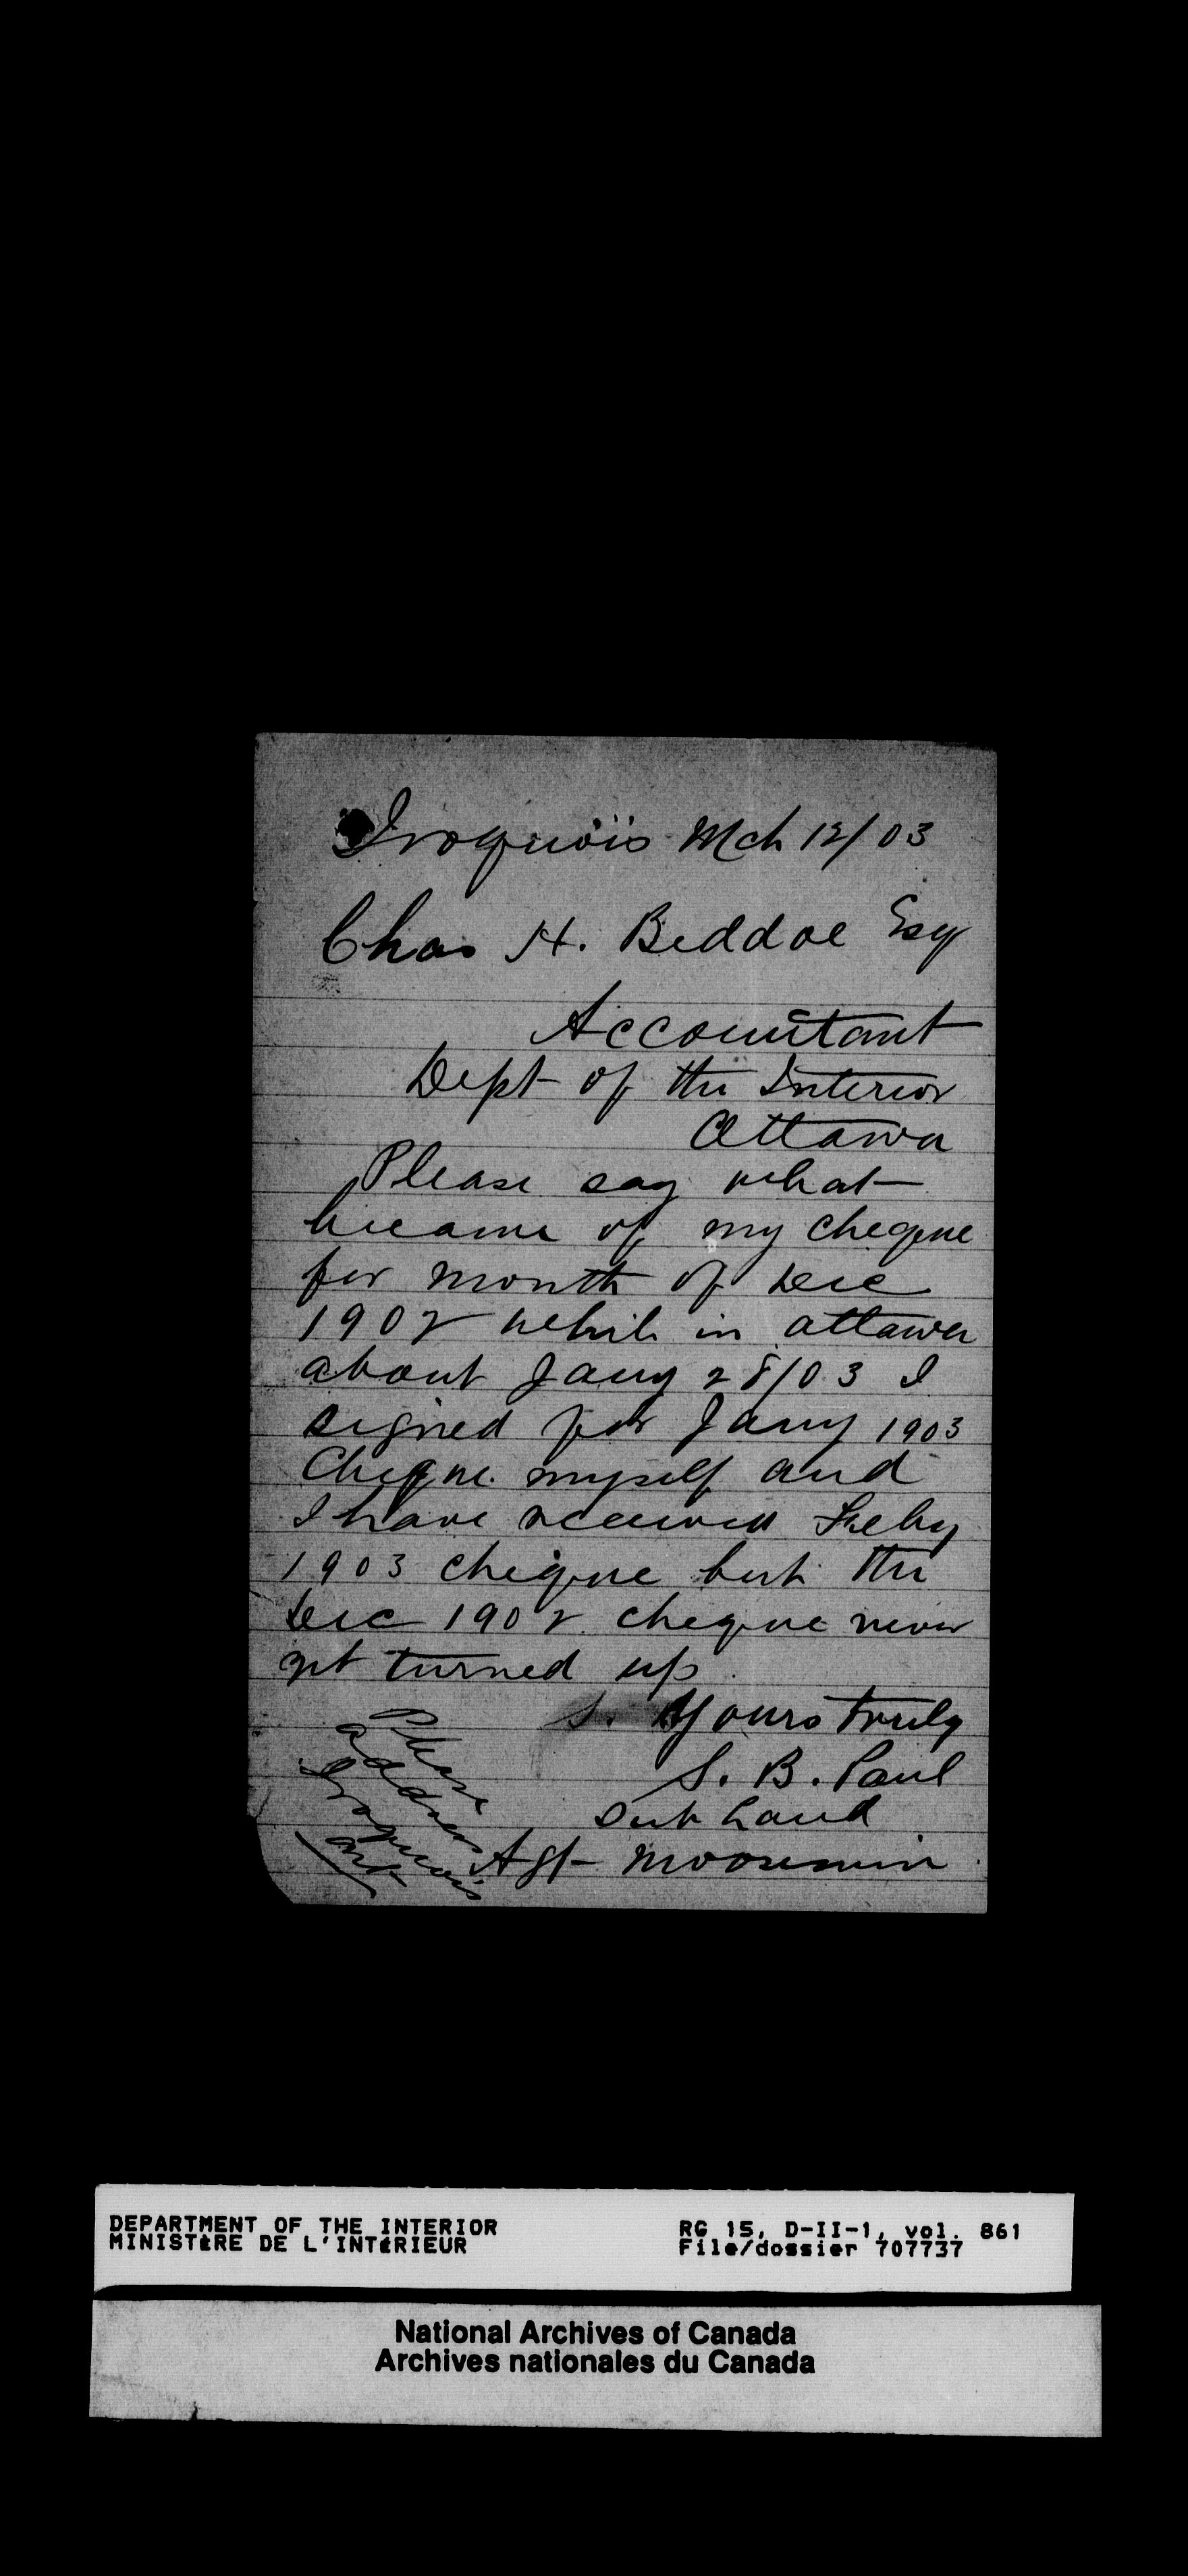 Iroquois Mch 12/03
Chas H. Beddoe Esq
Accountant
Dept of the Interior
Ottawa
Please say what
became of my cheque
for month of Dec
1902 while in Ottawa
about Jany 28/03 I
signed for Jany 1903
Cheque myself and
I have received Feby
1903 cheque but the
Dec 1902 cheque never
yet turned up.
S. Yours truly
S. B. Paul
Sub Land
Agt Moosomin
Please
address
Iroquois
Ont
DEPARTMENT OF THE INTERIOR
MINISTÈRE DE L'INTÉRIEUR
RG 15, D-II-1, vol. 861
File/dossier 707737
National Archives of Canada
Archives nationales du Canada